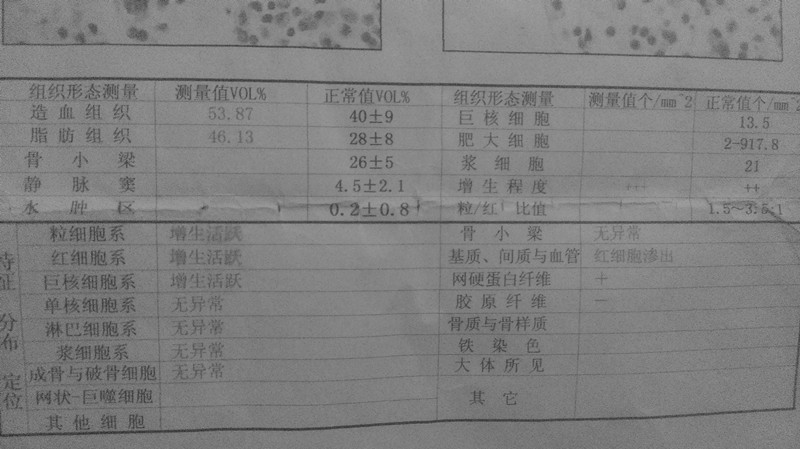 组织形态测量 测量值VOL% 正常值VOL% 组织形态测量 测量值个/mm^2 正常值个/mm^2
造血组织 53.87 40±9 巨核细胞 13.5
脂肪组织 46.13 28±8 肥大细胞 2-917.8
骨小梁 26±5 浆细胞 21
静脉窦 4.5±2.1 增生程度 +++ ++
水肿区 0.2±0.8 粒/红 比值 1.5~3.5:1
特征 分布 定位
粒细胞系 增生活跃 骨小梁 无异常
红细胞系 增生活跃 基质、间质与血管 红细胞渗出
巨核细胞系 增生活跃 网硬蛋白纤维 +
单核细胞系 无异常 胶原纤维 -
淋巴细胞系 无异常 骨质与骨样质
浆细胞系 无异常 铁染色
成骨与破骨细胞 无异常 大体所见
网状-巨噬细胞 其它
其他细胞